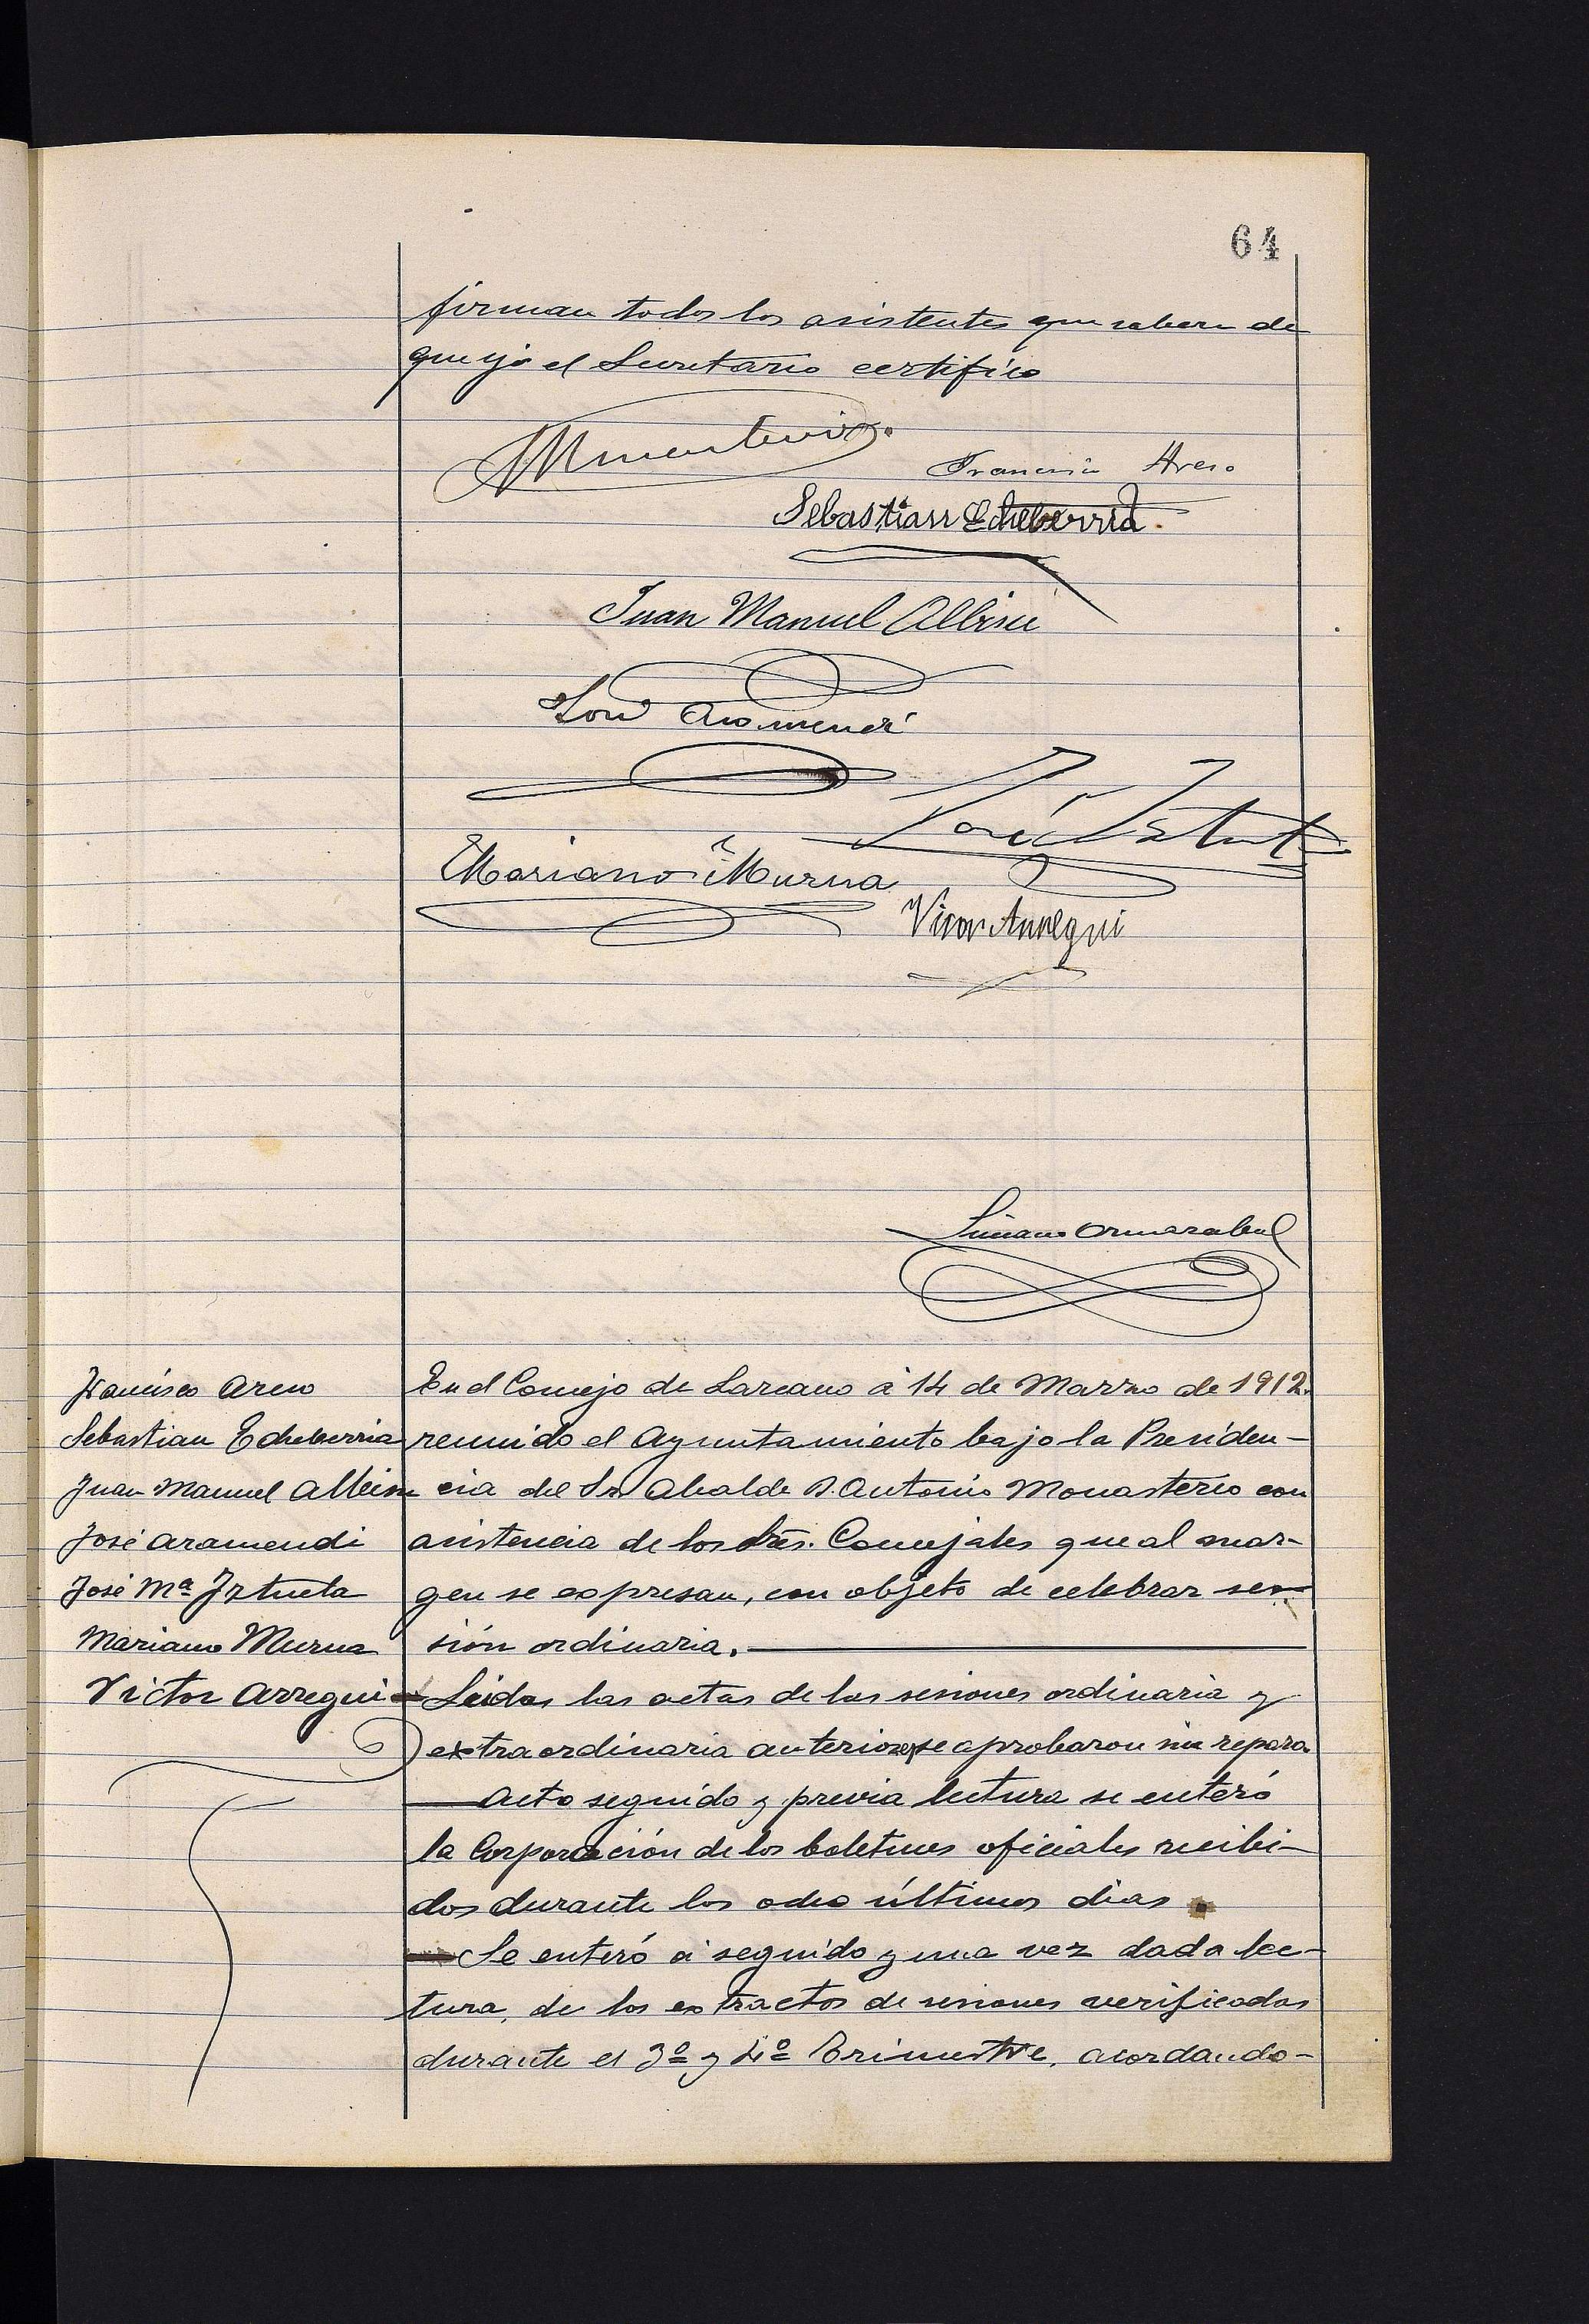 64
firman todos los asistentes que saben de
que yo el Secretario certifico
Francisco Areso
Sebastian Echeberria.
Juan Manuel Albisu
José Aramendi
José Iztueta
Mariano Murua
Victor Arregui
Luciano Ormazabal
Francisco Areso
Sebastian Echeberria
Juan Manuel Albisu
José Aramendi
José Mª Iztueta
Mariano Murua
Victor Arregui
En el Concejo de Lazcano á 14 de Marzo de 1912.
reunido el Ayuntamiento bajo la Presiden-
cia del Sr. Alcalde D. Antonio Monasterio con
asistencia de los Sres. Concejales que al mar-
gen se expresan, con objeto de celebrar se-
sión ordinaria.
Leidas las actas de las sesiones ordinaria y
extraordinaria anteriores se aprobaron sin reparo.
Acto seguido y previa lectura se enteró
la Corporación de los boletines oficiales recibi-
dos durante los ocho últimos dias.
Se enteró á seguido y una vez dada lec-
tura, de los extractos de sesiones verificadas
durante el 3º y 4º Trimestre, acordando-